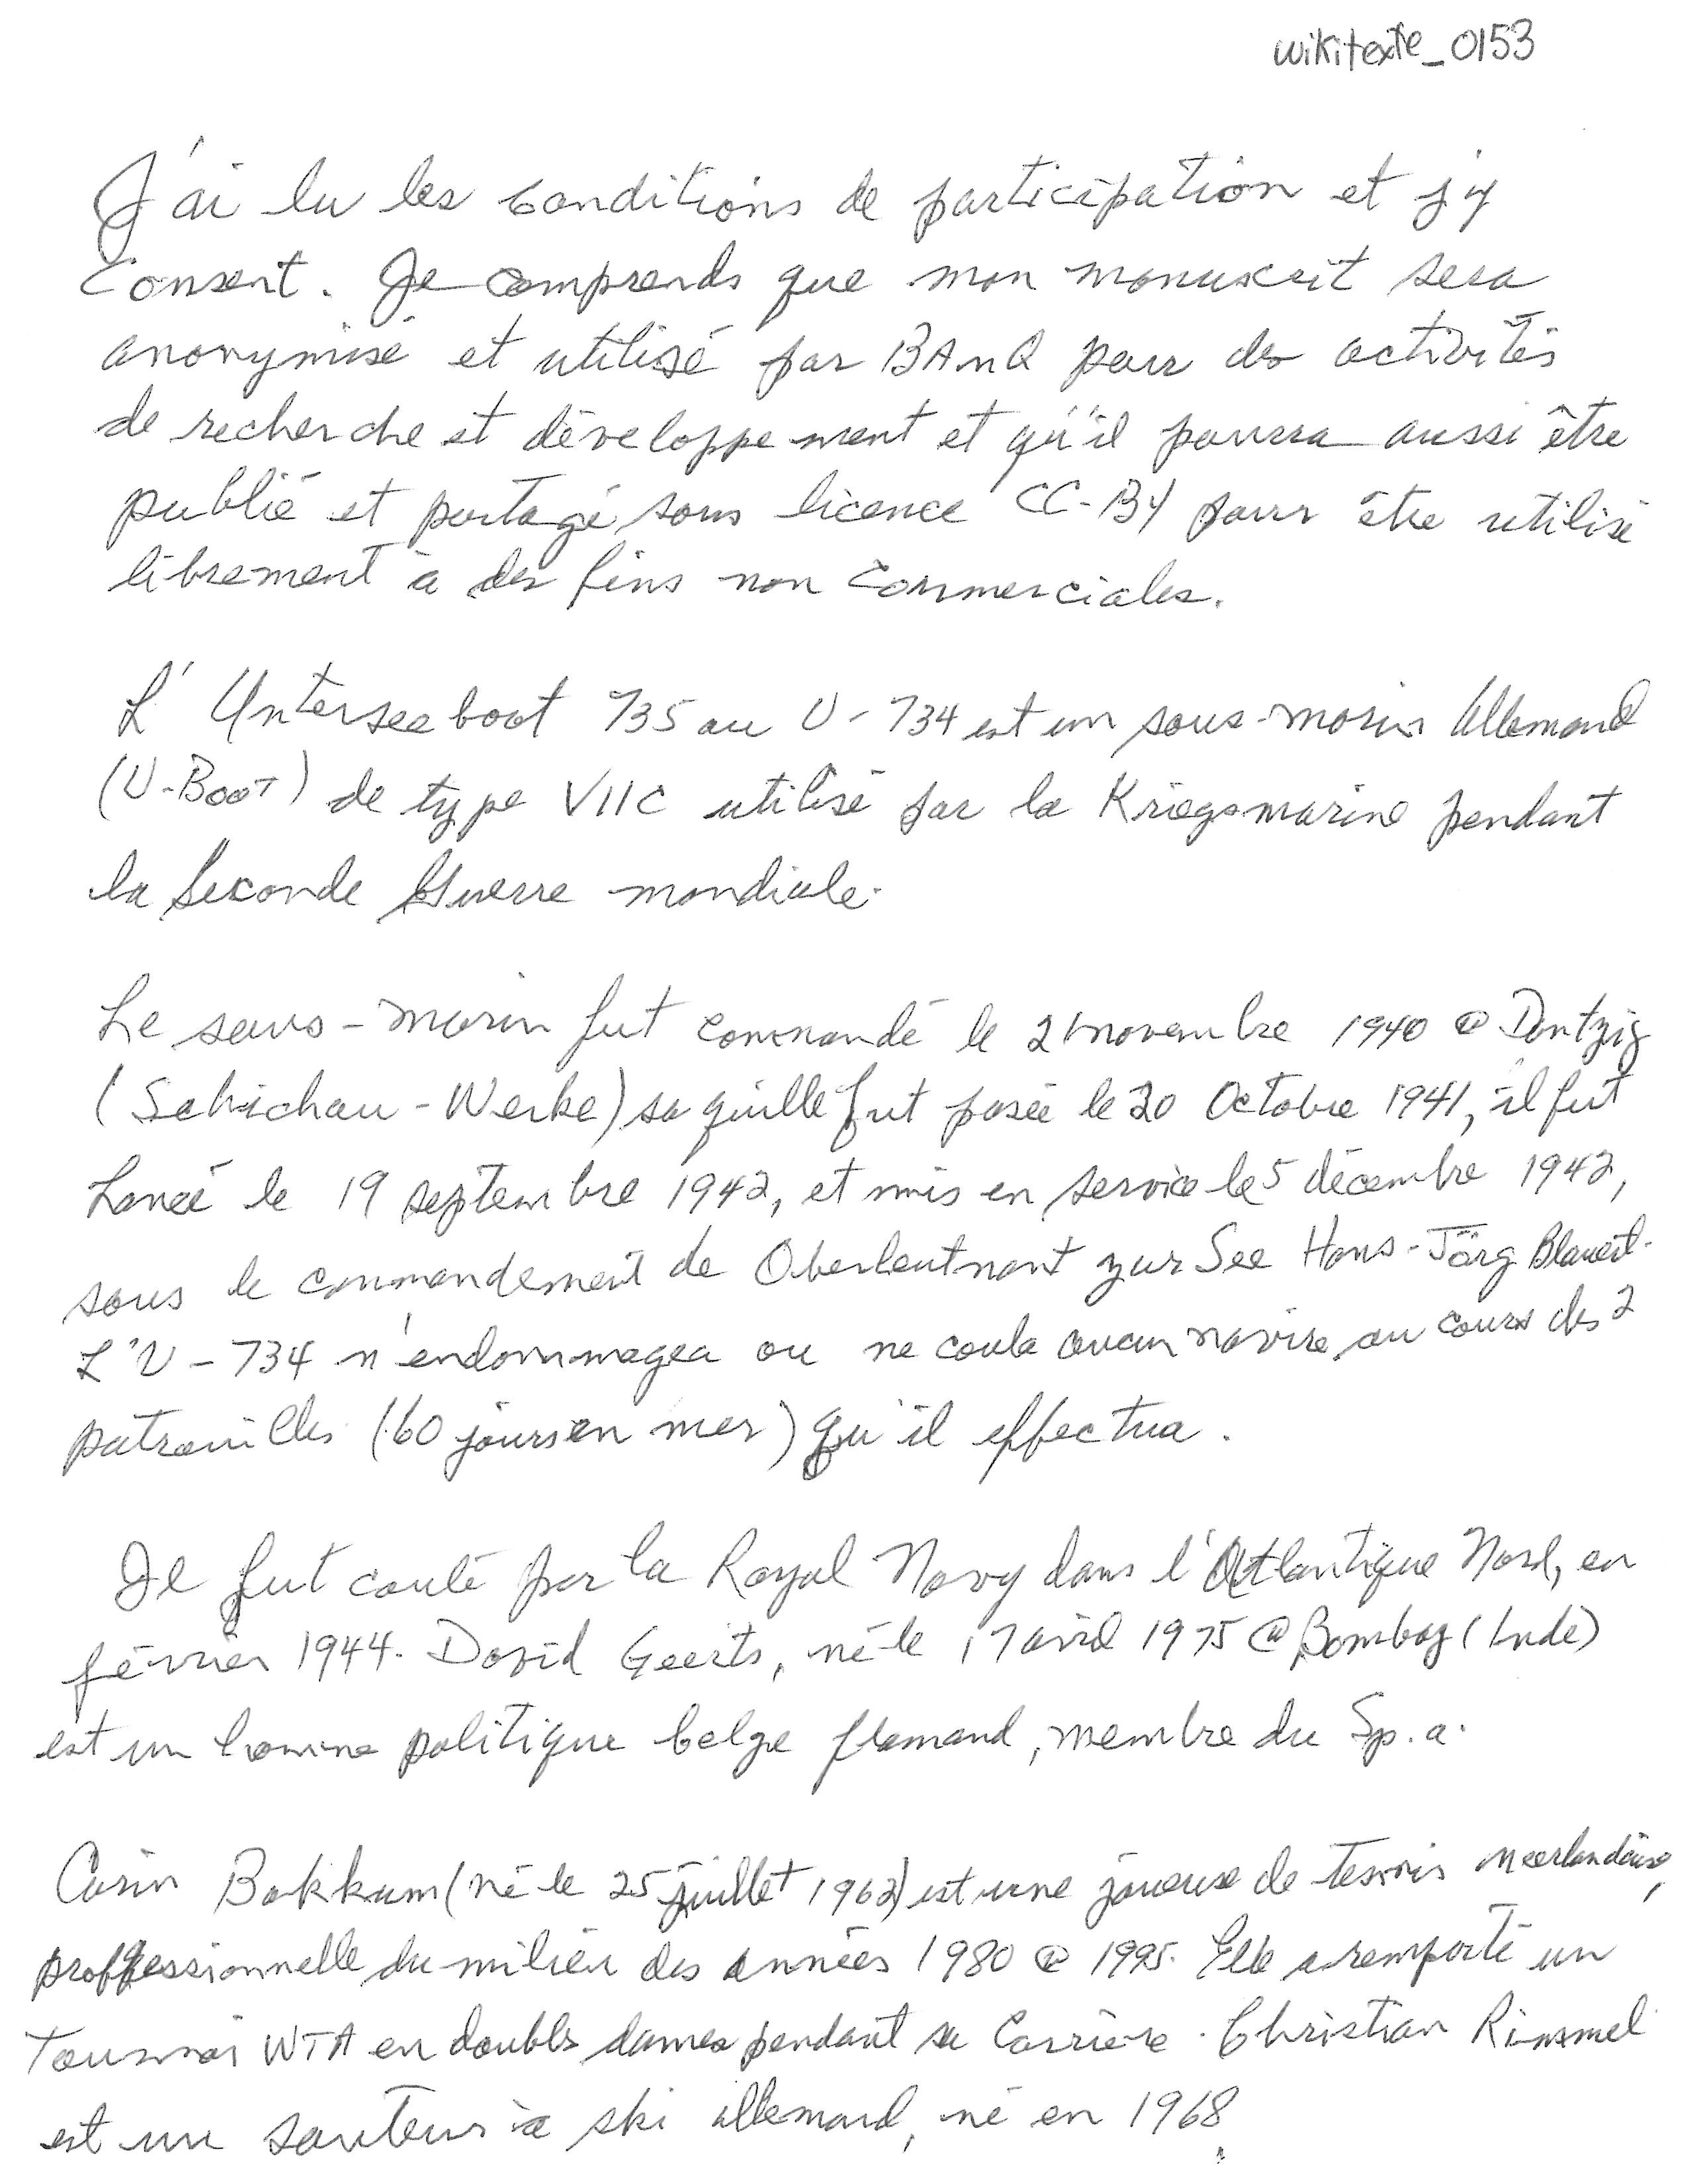 wikitexte_0153
J'ai lu les conditions de participation et j'y
consent. Je comprends que mon manuscrit sera
anonymisé et utilisé par BAnQ pour des activités
de recherche et développement et qu'il pourra aussi être
publié et partagé sous licence CC-BY pour être utilisé
librement à des fins non commerciales.
L'Unterseeboot 735 ou U-734 est un sous-marin Allemand
(U-Boot) de type VIIC utilisé par la Kriegsmarine pendant
la Seconde Guerre mondiale.
Le sous-marin fut commandé le 21 novembre 1940 @ Dantzig
(Schichau-Werke) sa quille fut posée le 20 Octobre 1941, il fut
Lancé le 19 septembre 1942, et mis en service le 5 décembre 1942,
sous le commandement de Oberleutnant zur See Hans-Jörg Blauert.
L'U-734 n'endommagea ou ne coula aucun navire au cours des 2
patrouilles (60 jours en mer) qu'il effectua.
Il fut coulé par la Royal Navy dans l'Atlantique Nord, en
février 1944. David Geerts, né le 17 avril 1975 @ Bombay (Inde)
est un homme politique belge flamand, membre du Sp.a.
Carin Bakkum (né le 25 juillet 1962) est une joueuse de tennis néerlandaise,
professionnelle du milieu des années 1980 @ 1995. Elle a remporté un
Tournoi WTA en double dames pendant sa Carrière. Christian Rimmel
est un sauteur à ski allemand, né en 1968.